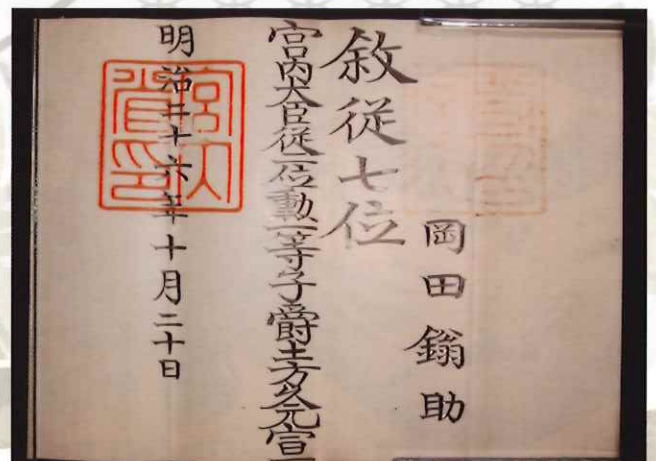 岡田鎓助
敘從七位
宮内大臣從二位勳一等子爵土方久元宣
明治二十六年十月二十日
宮内省印